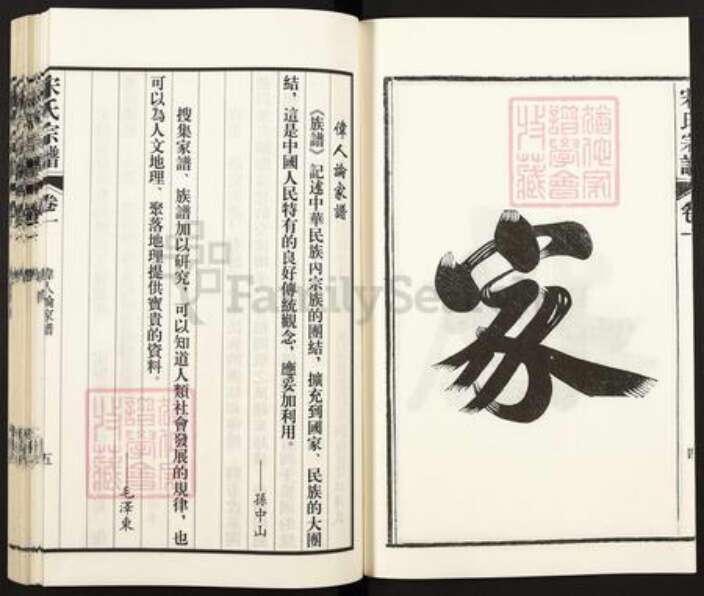 宋氏宗譜
卷一
四
家
偉人論家譜
《族譜》記述中華民族內宗族的團結，擴充到國家、民族的大團
結，這是中國人民特有的良好傳統觀念，應妥加利用。
——孫中山
搜集家譜、族譜加以研究，可以知道人類社會發展的規律，也
可以為人文地理、聚落地理提供寶貴的資料。
——毛澤東
宋氏宗譜
卷一
偉人論家譜
五
FamilySearch